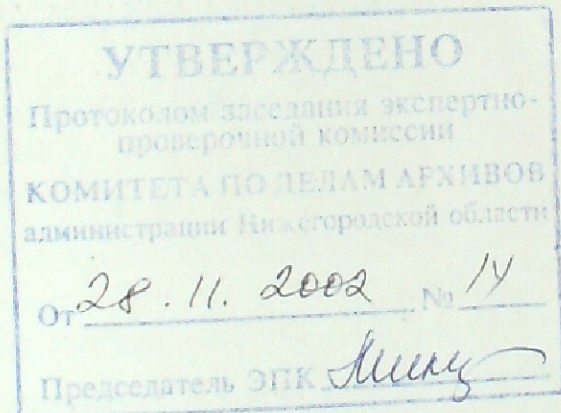 УТВЕРЖДЕНО
Протоколом заседания экспертно-
проверочной комиссии
КОМИТЕТА ПО ДЕЛАМ АРХИВОВ
администрации Нижегородской области
От 28.11.2002 № 14
Председатель ЭПК